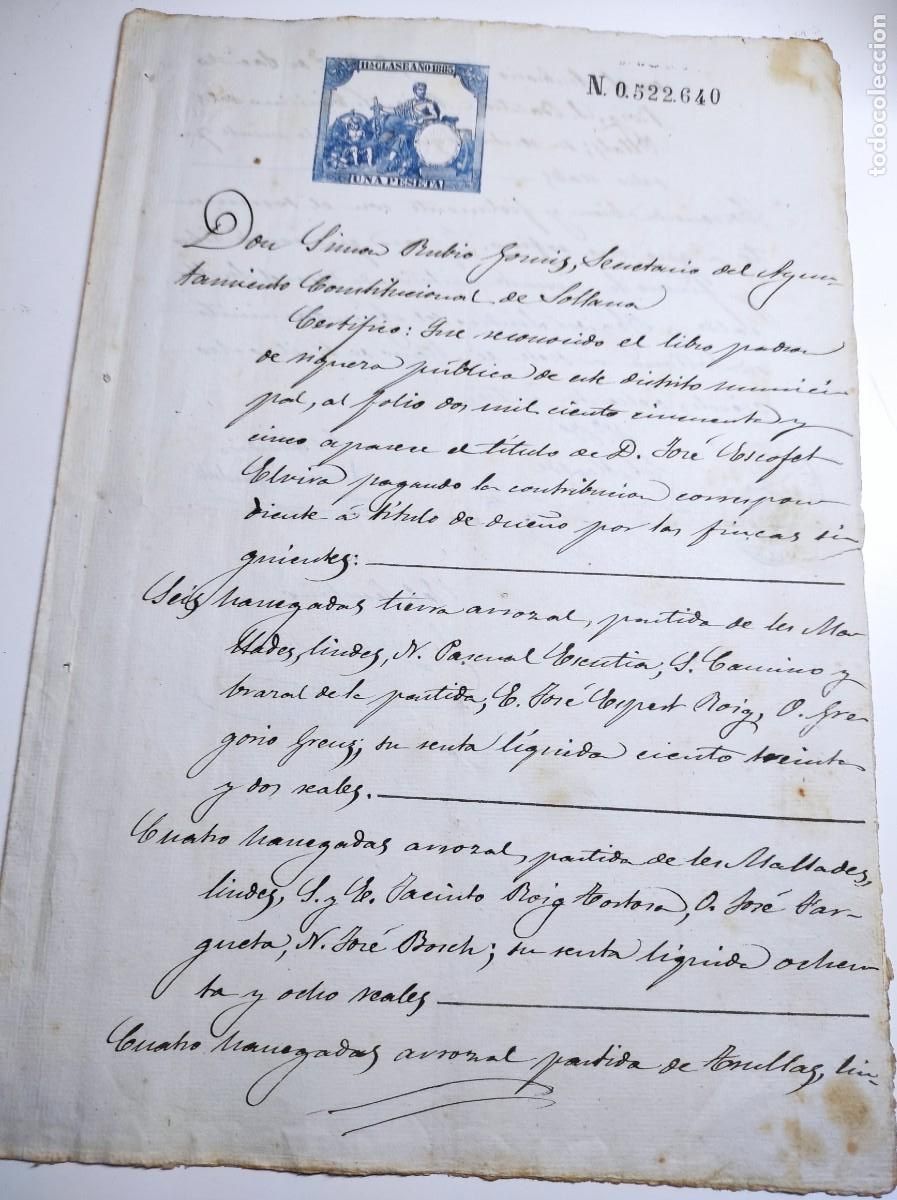 11ª CLASE AÑO 1885
N. 0.522.640
UNA PESETA
todocoleccion
Don Simon Rubio Gomis, Secretario del Ayun-
tamiento Constitucional de Sollana
Certifico: Que reconocido el libro padron
de riqueza pública de este distrito munici
pal, al folio dos mil ciento cincuenta y
cinco aparece el título de D. José Escofet
Elvira pagando la contribucion correspon
diente á título de dueño por las fincas si
guientes:
Seis hanegadas tierra arrozal, partida de les Ma
llades, lindes, N. Pascual Escutia, S. Camino y
brazal de la partida, E. José Espert Roig, O. Gre
gorio Greus, su renta líquida ciento treinta
y dos reales.
Cuatro hanegadas arrozal, partida de les Mallades,
lindes, S. y E. Jacinto Roig Tortosa, O. José Far-
gueta, N. José Bosch; su renta líquida ochen
ta y ocho reales
Cuatro hanegadas arrozal partida de Trullas, lin-